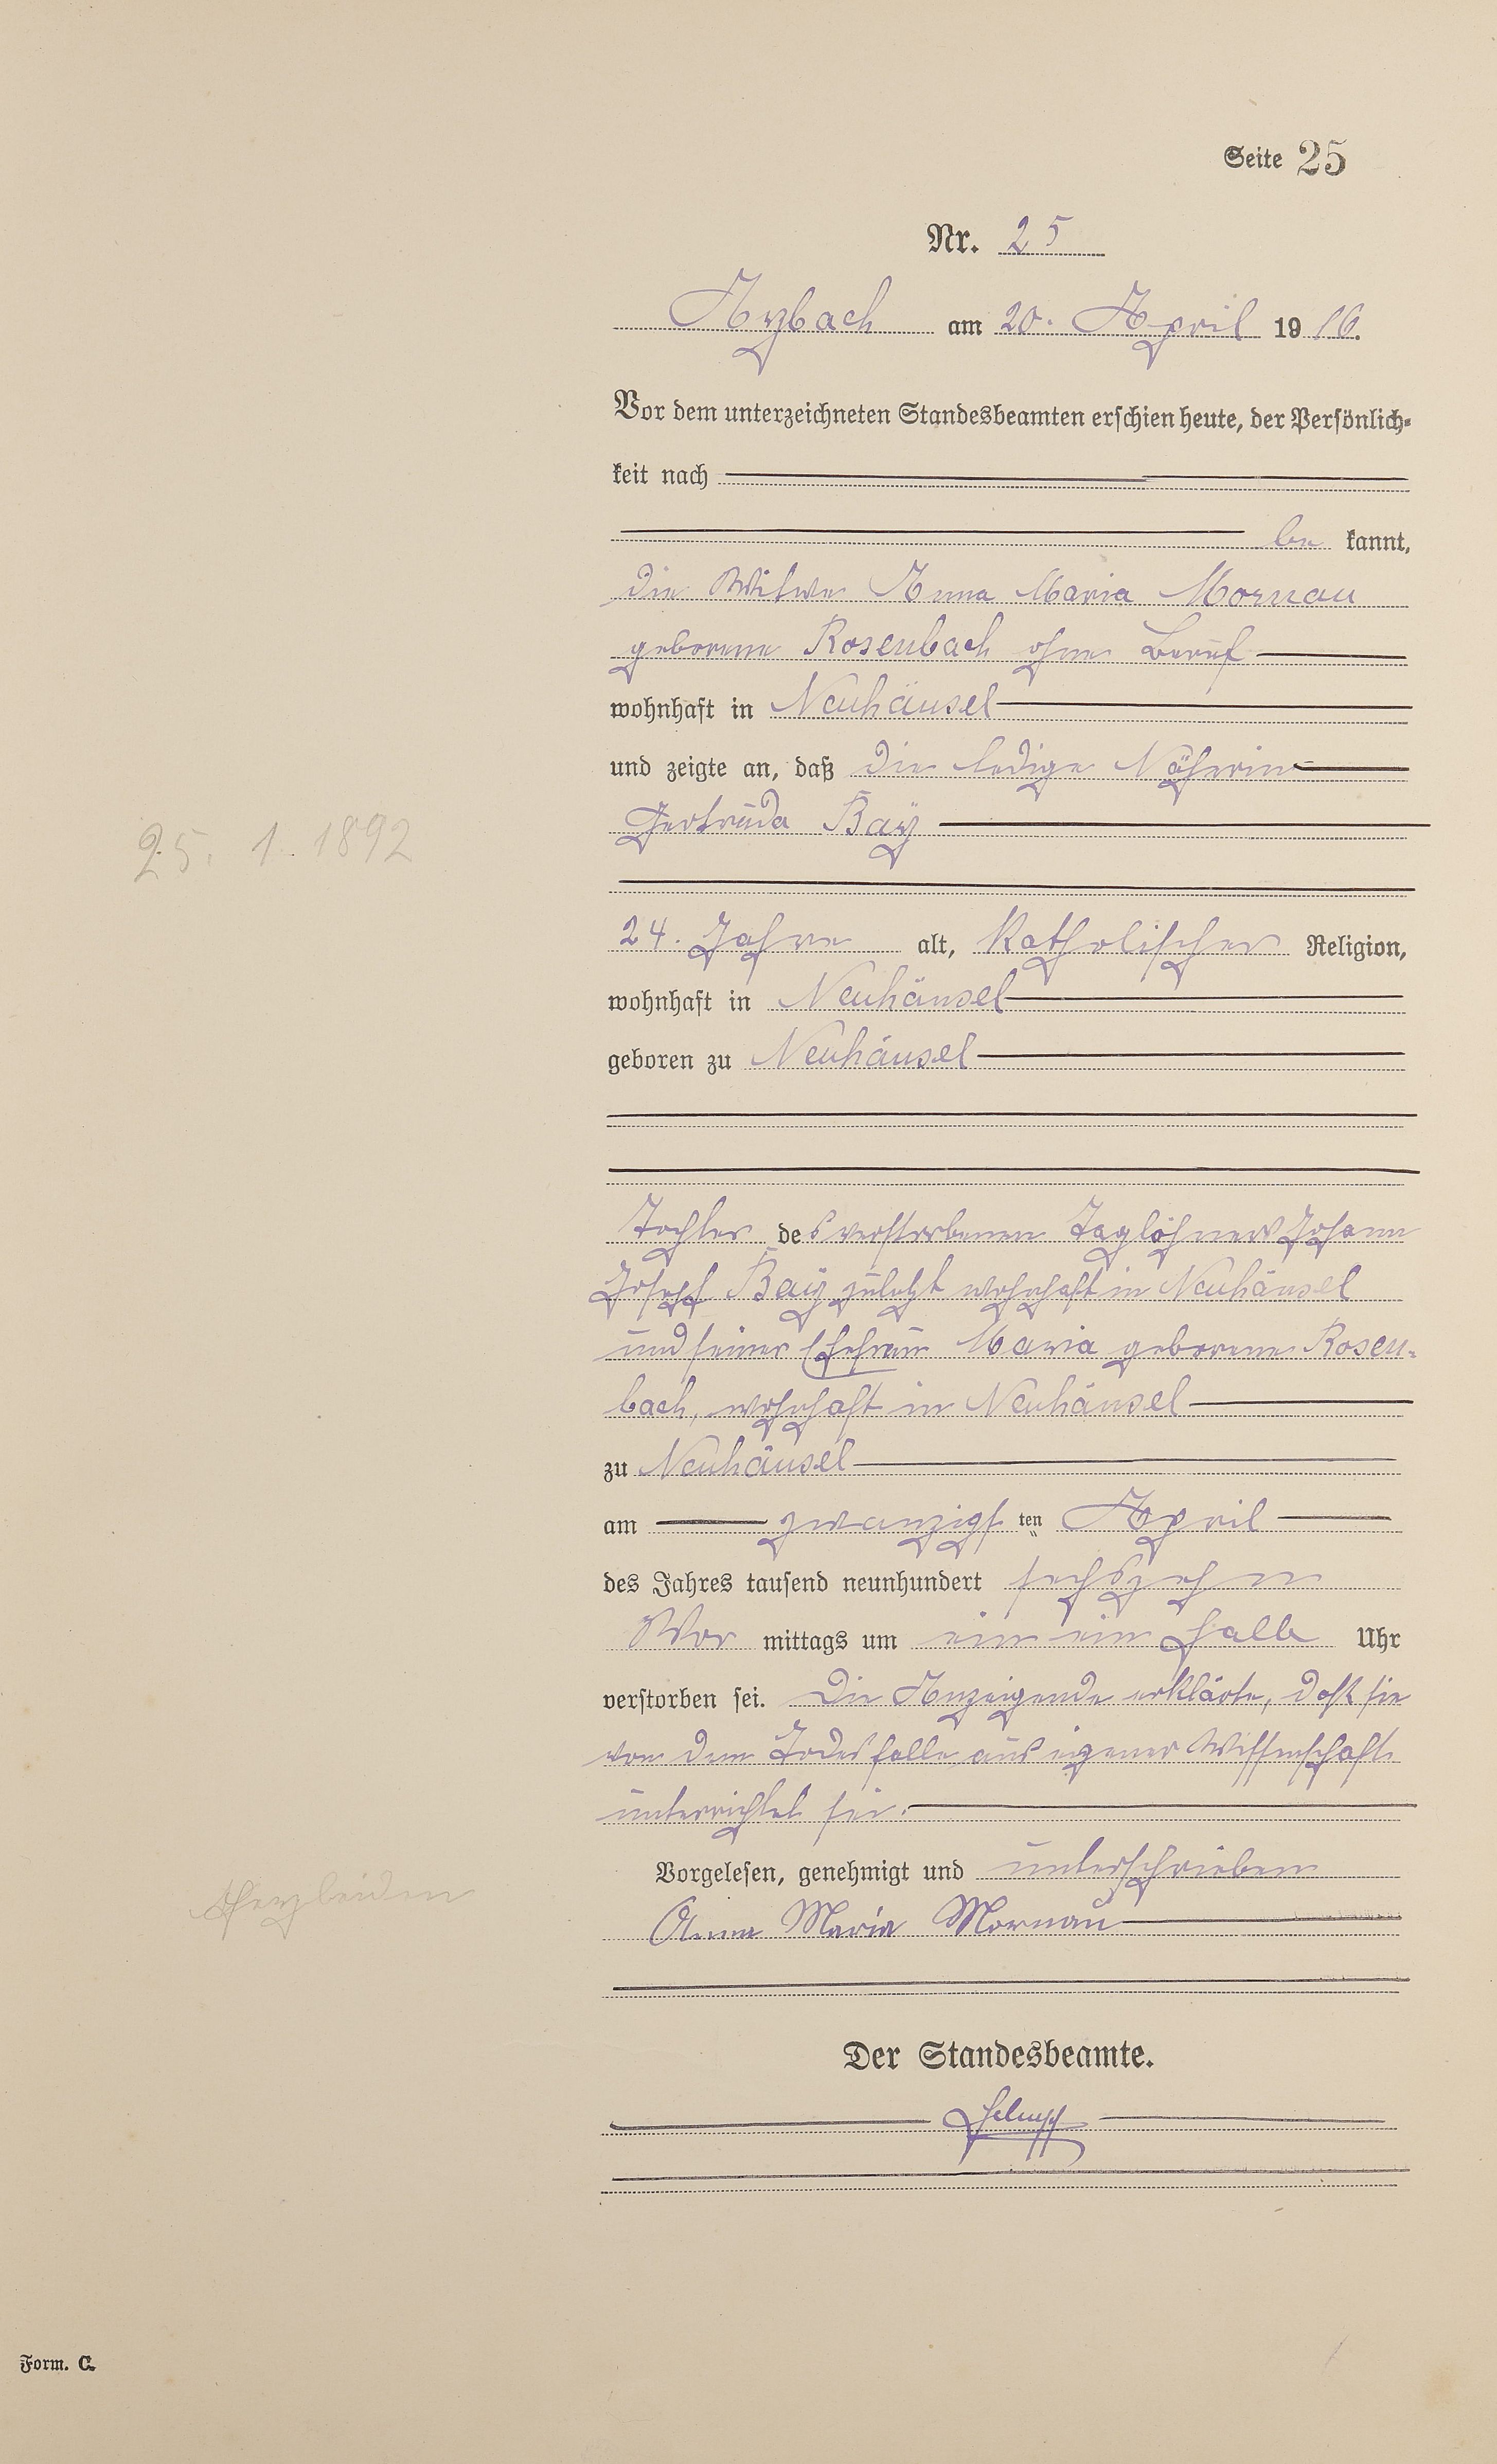 Seite 25
Nr. 25
Arzbach am 20. April 1916.
Vor dem unterzeichneten Standesbeamten erschien heute, der Persönlich-
keit nach
be kannt,
die Witwe Anna Maria Mornau
geborene Rosenbach ohne Beruf
wohnhaft in Neuhäusel
und zeigte an, daß die ledige Näherin
Gertruda Baÿ
25. 1. 1892
24. Jahre alt, katholischer Religion,
wohnhaft in Neuhäusel
geboren zu Neuhäusel
Tochter des verstorbenen Taglöhners Johann
Josepf Baÿ zuletzt wohnhaft in Neuhäusel
und seiner Ehefrau Maria geborene Rosen-
bach, wohnhaft in Neuhäusel
zu Neuhäusel
am zwanzigsten April
des Jahres tausend neunhundert sechszehn
Vor mittags um ein ein halb Uhr
verstorben sei. Die Anzeigende erklärte, daß sie
von dem Todesfalle aus eigener Wissenschaft
unterrichtet sei.
Vorgelesen, genehmigt und unterschrieben
Herzleiden
Anna Maria Mornau
Der Standesbeamte.
Form. C.